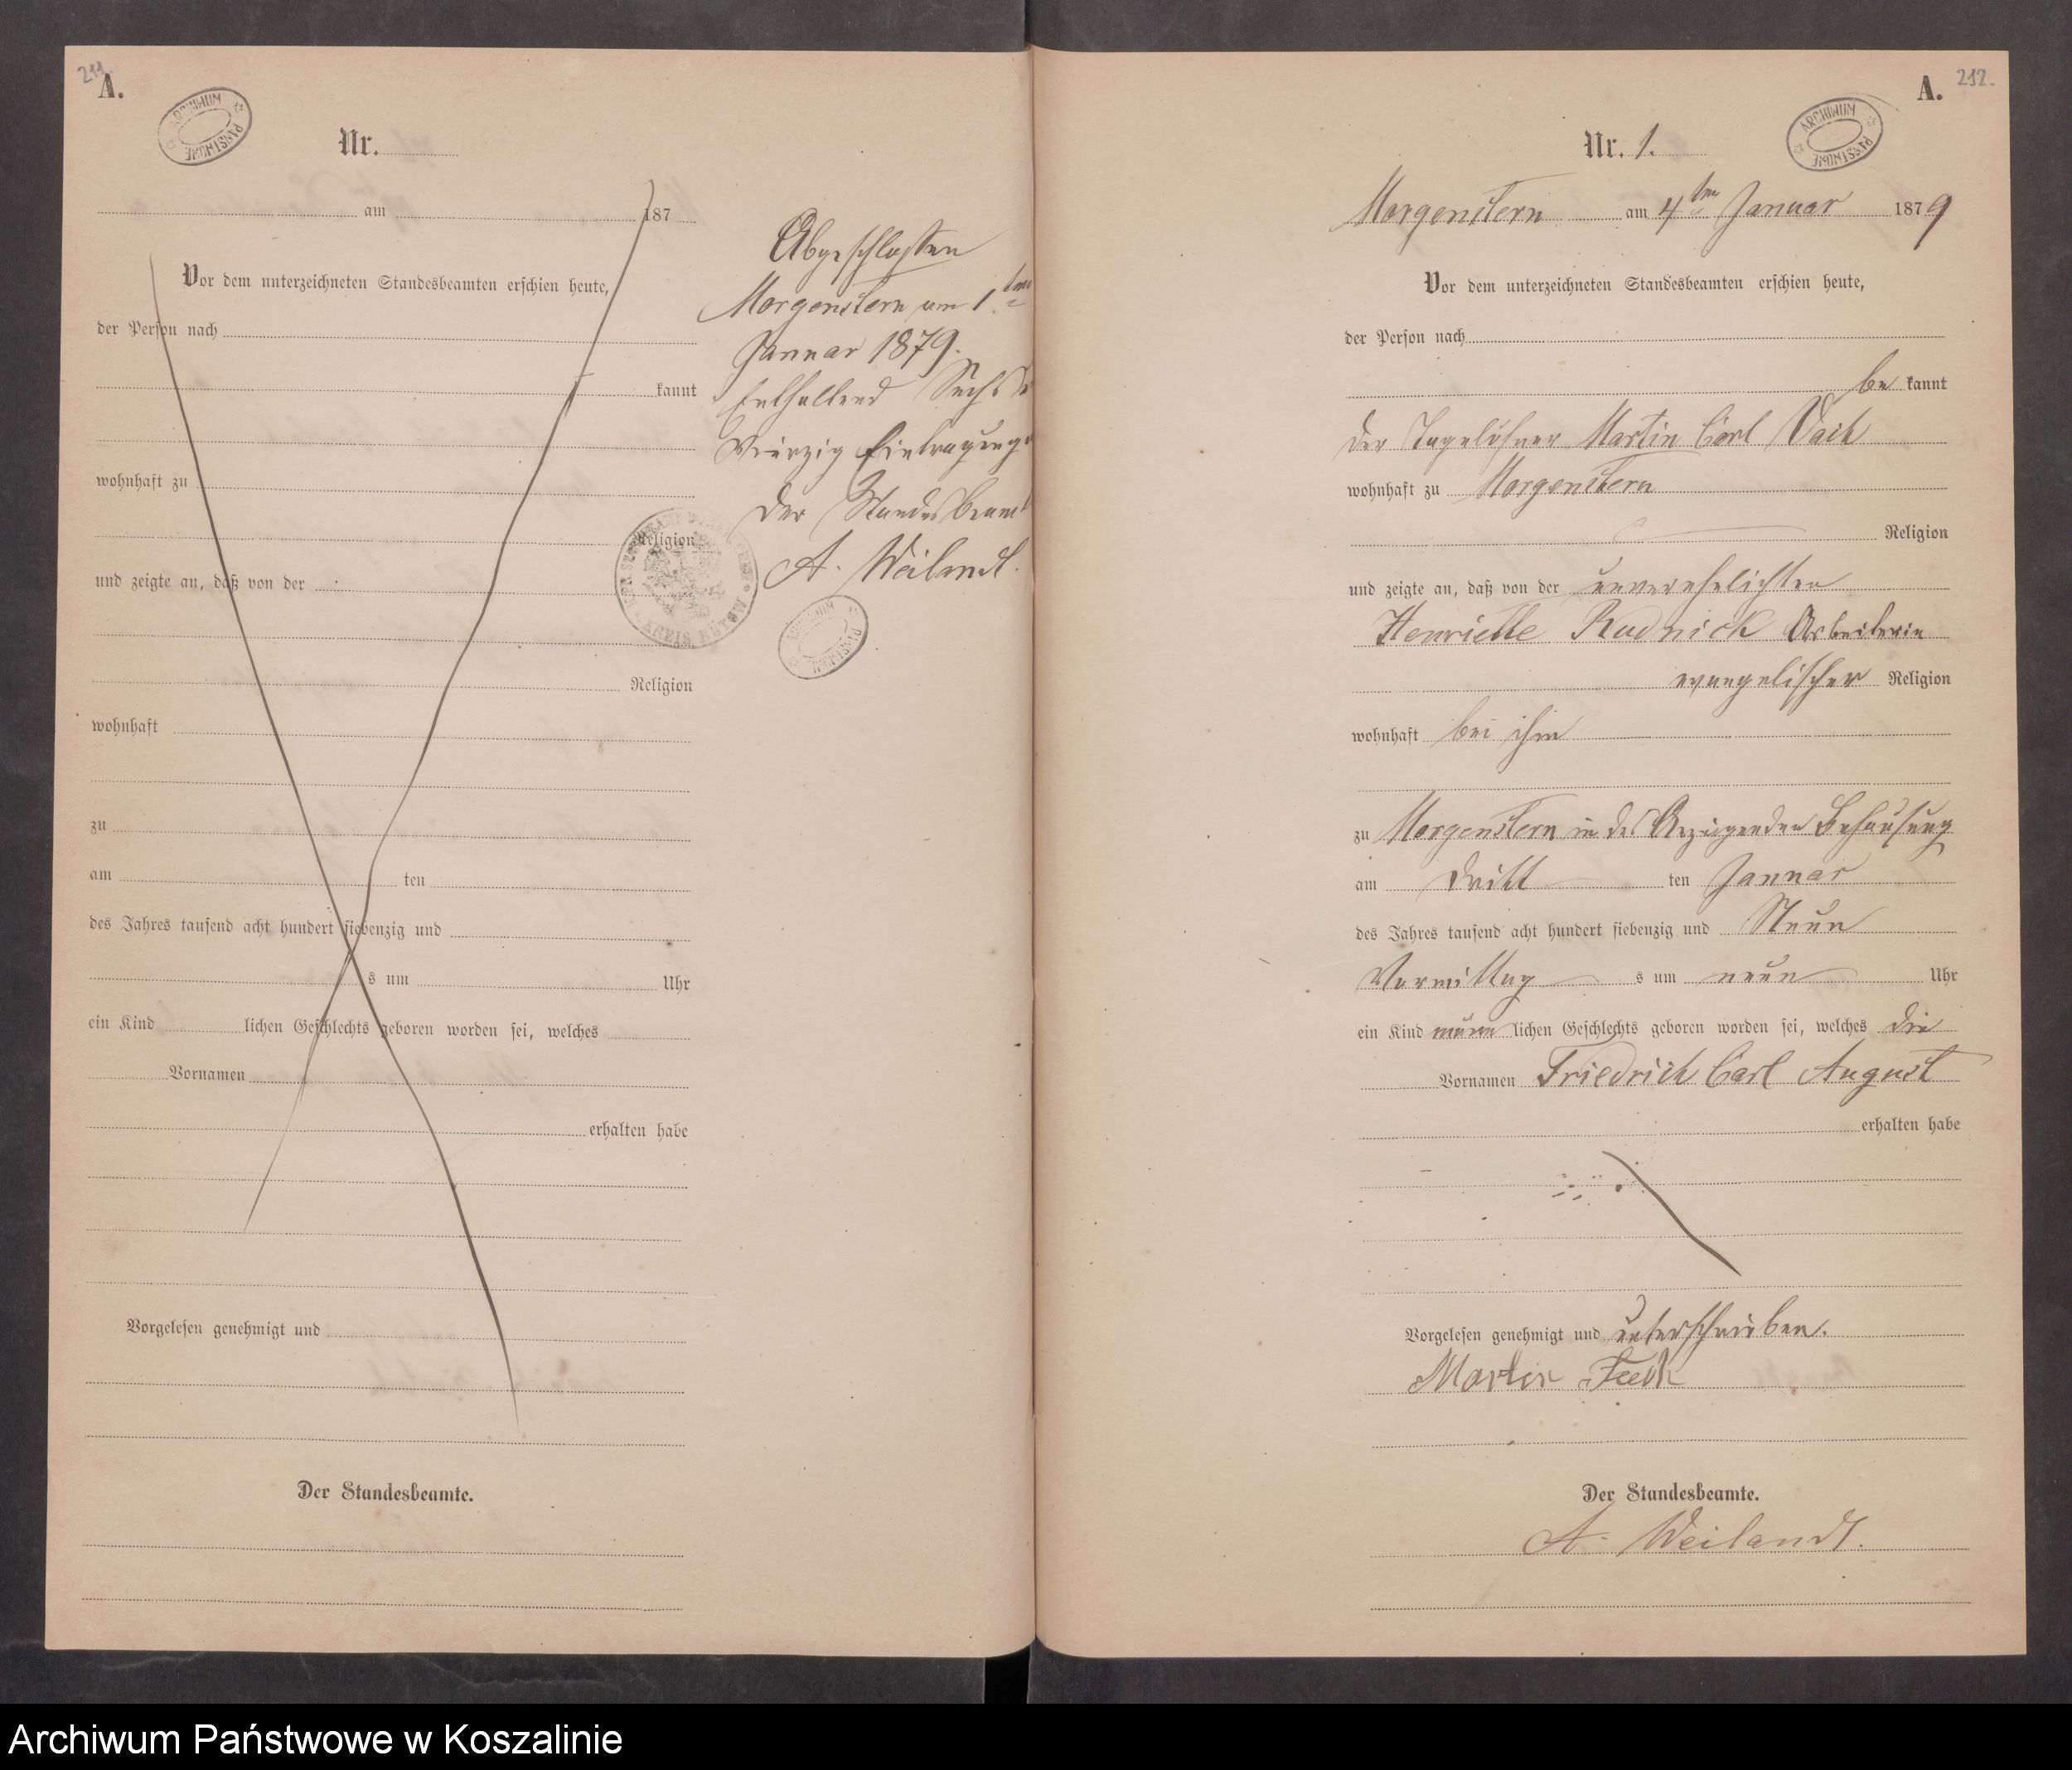 211
A.
ARCHIWUM PAŃSTWOWE
Nr.
am 187
Vor dem unterzeichneten Standesbeamten erschien heute,
der Person nach
kannt
wohnhaft zu
Religion
und zeigte an, daß von der
Religion
wohnhaft
zu
am ten
des Jahres tausend acht hundert siebenzig und
s um Uhr
ein Kind lichen Geschlechts geboren worden sei, welches
Vornamen
erhalten habe
Vorgelesen genehmigt und
Der Standesbeamte.
Abgeschlossen
Morgenstern am 1ten
Januar 1879.
Enthaltend Sechs
Vierzig
Der
A. Weilandt.
KREIS BÜTOW
ARCHIWUM PAŃSTWOWE
A. 212.
ARCHIWUM PAŃSTWOWE
Nr. 1.
Morgenstern am 4ten Januar 1879
Vor dem unterzeichneten Standesbeamten erschien heute,
der Person nach
be kannt
der Tagelöhner Martin Carl
wohnhaft zu Morgenstern
Religion
und zeigte an, daß von der unverehelichten
Henriette Rudnick Arbeiterin
evangelischer Religion
wohnhaft bei ihm
zu Morgenstern in des Anzeigenden Behausung
am dritt ten Januar
des Jahres tausend acht hundert siebenzig und Neun
Vormittag s um neun Uhr
ein Kind männ lichen Geschlechts geboren worden sei, welches die
Vornamen Friedrich Carl August
erhalten habe
Vorgelesen genehmigt und unterschrieben.
Martin
Der Standesbeamte.
A. Weilandt.
Archiwum Państwowe w Koszalinie